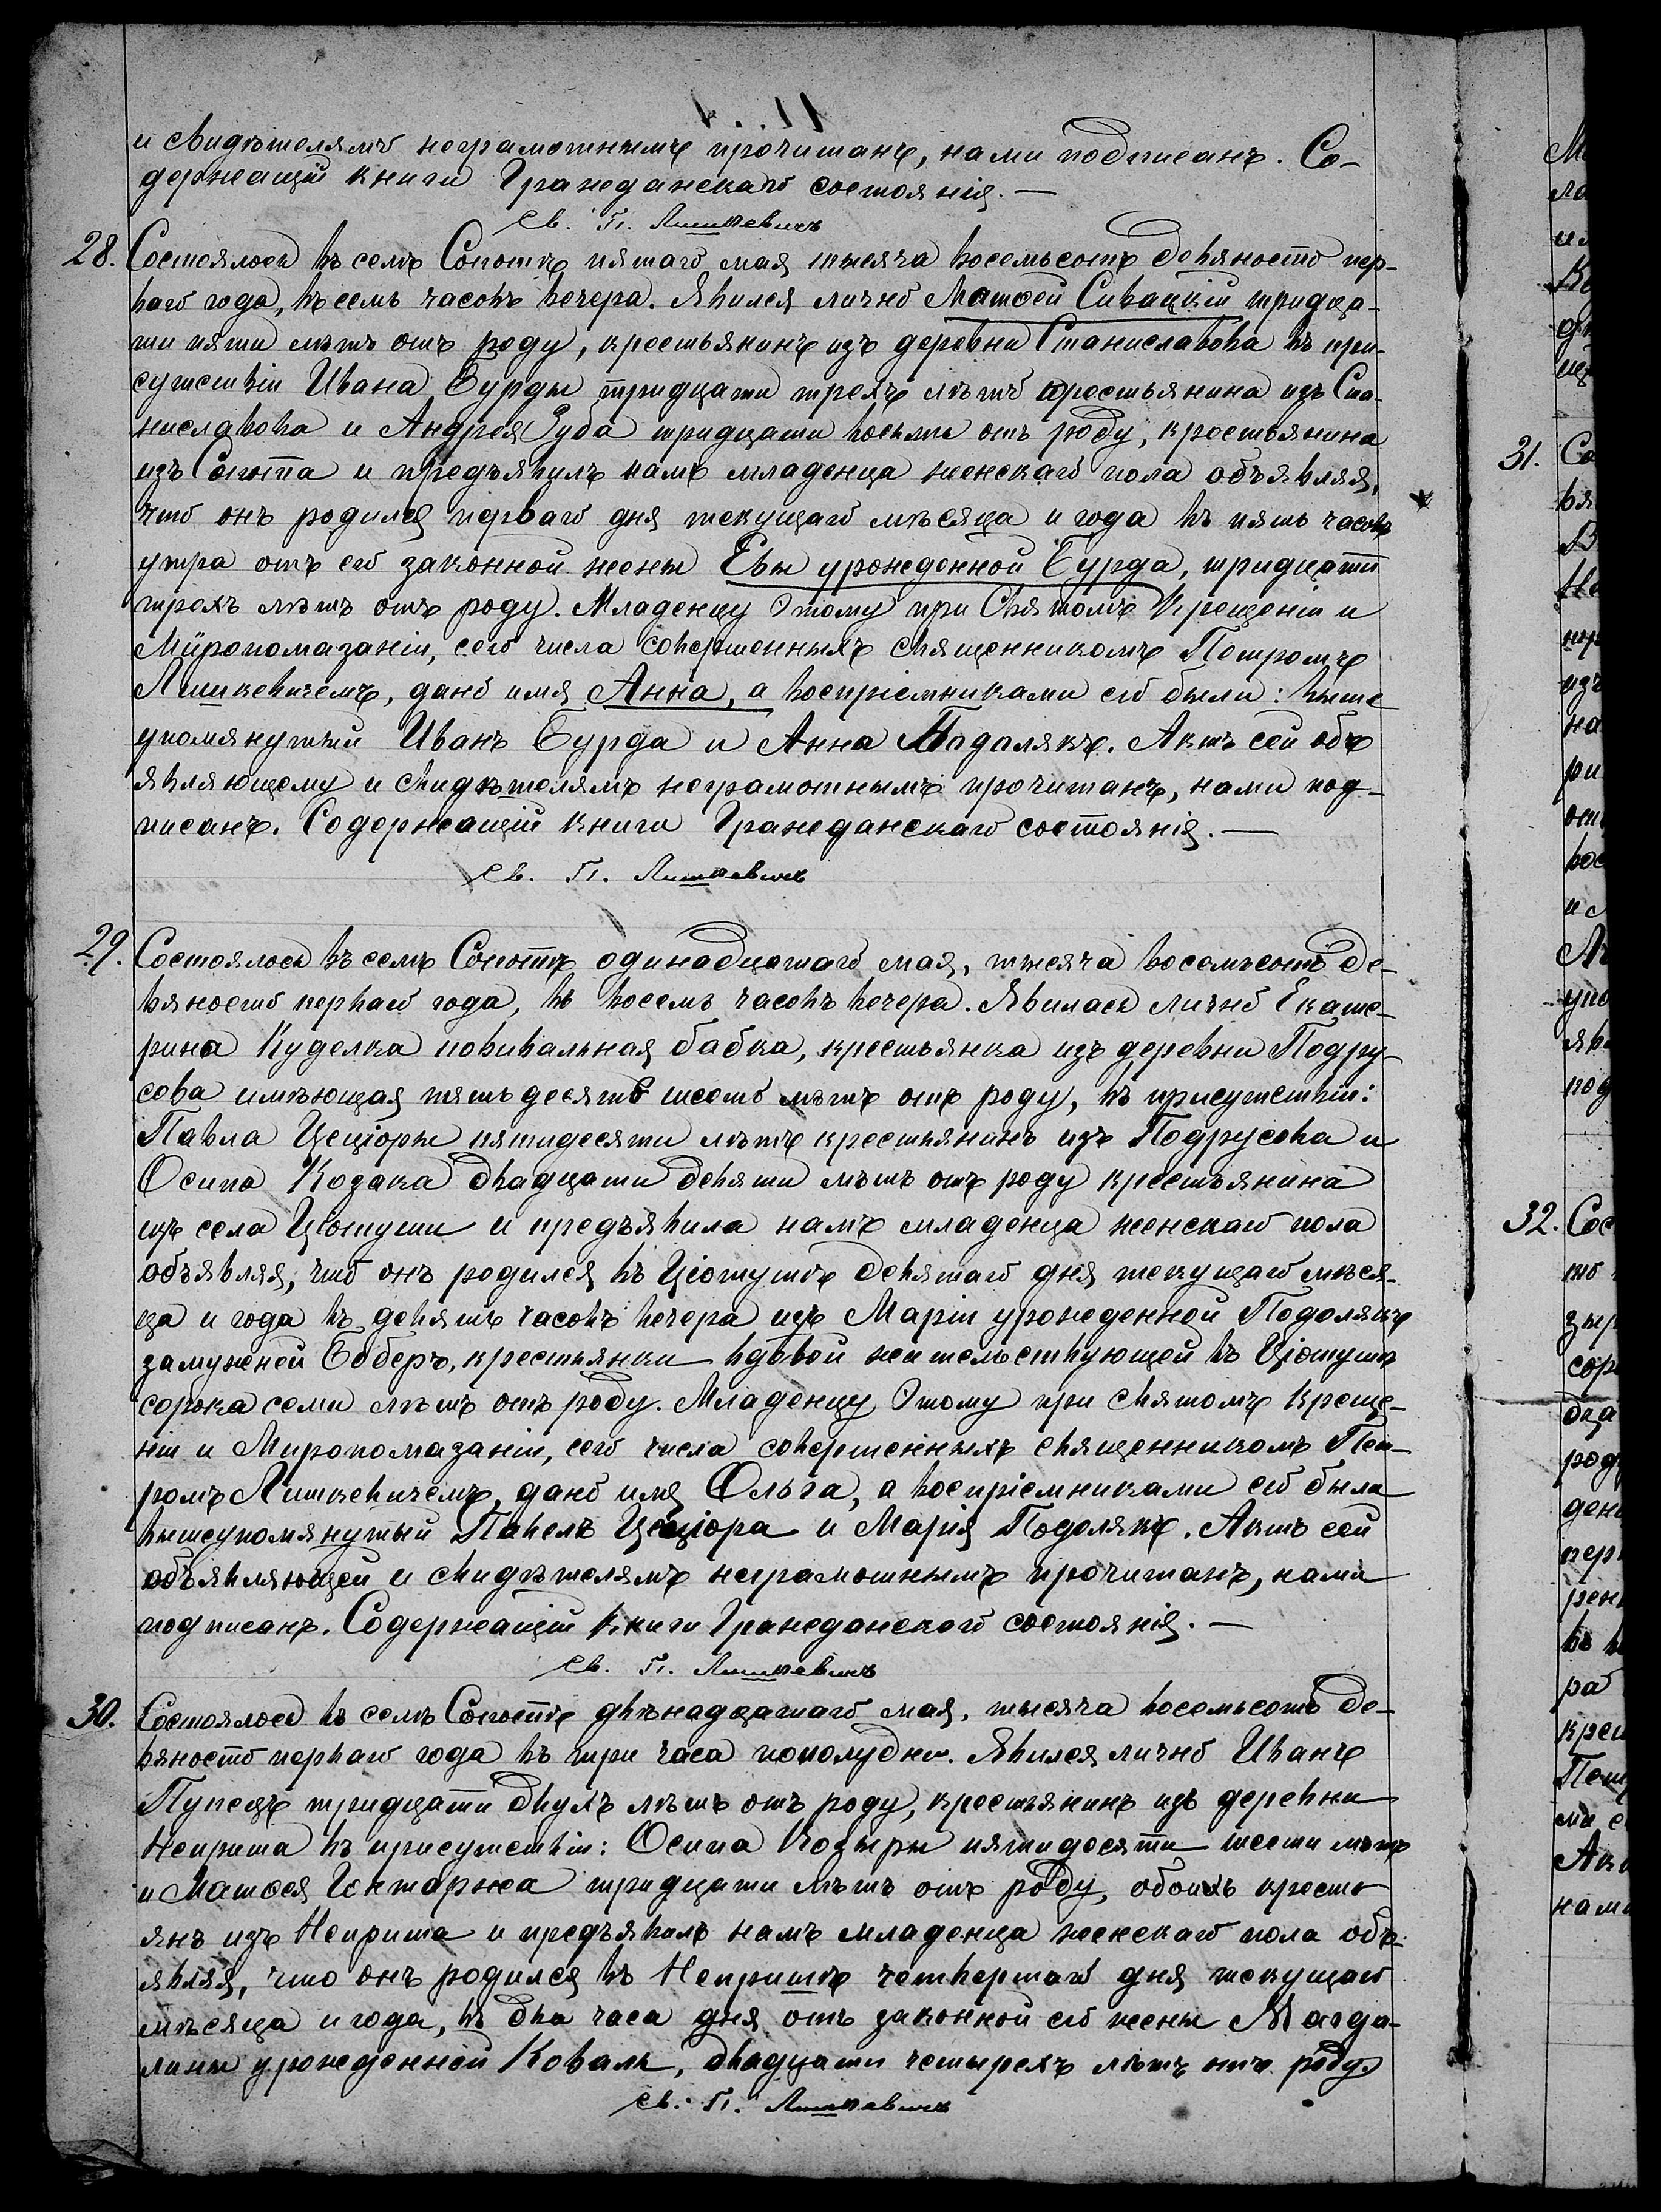 и свидѣтелямъ неграмотнымъ прочитанъ, нами подписанъ. Со-
держащій книги Гражданскаго состоянія. —
Св. П. Лишкевичъ
28. Состоялось въ селѣ Сопотѣ пятаго мая тысяча восемьсотъ девяносто пер-
ваго года, въ семь часовъ вечера. Явился лично Матѳей Сивацкій тридца-
ти пяти лѣтъ отъ роду, крестьянинъ изъ деревни Станиславова въ при-
сутствіи Ивана Бурды тридцати трехъ лѣтъ крестьянина изъ Ста-
ниславова и Андрея Зуба тридцати восьми отъ роду, крестьянина
изъ Сопота и предъявилъ намъ младенца женскаго пола объявляя,
что онъ родился перваго дня текущаго мѣсяца и года въ пять часовъ
утра отъ его законной жены Евы урожденной Бурда, тридцати
трехъ лѣтъ отъ роду. Младенцу этому при Святомъ Крещеніи и
Мѵропомазаніи, сего числа совершенныхъ Священникомъ Петромъ
Лишкевичемъ, дано имя Анна, а воспріемниками его были: выше
упомянутый Иванъ Бурда и Анна Подолякъ. Актъ сей объ
являющему и свидѣтелямъ неграмотнымъ прочитанъ, нами под-
писанъ. Содержащій книги Гражданскаго состоянія. —
Св. П. Лишкевичъ
29. Состоялось въ селѣ Сопотѣ одинадцатаго мая, тысяча восемьсотъ де-
вяносто перваго года, въ восемь часовъ вечера. Явилась лично Екате-
рина Куделка повивальная бабка, крестьянка изъ деревни Подру-
сова имѣющая пятьдесятъ шесть лѣтъ отъ роду, въ присутствіи:
Павла Цеціоры пятидесяти лѣтъ крестьянинъ изъ Подрусова и
Осипа Козака двадцати девяти лѣтъ отъ роду крестьянина
изъ села Ціотуши и предъявила намъ младенца женскаго пола
объявляя, что онъ родился въ Ціотушѣ девятаго дня текущаго мѣся-
ца и года въ девять часовъ вечера изъ Маріи урожденной Подолякъ
замужней Боберъ, крестьянки вдовой жительствующей въ Ціотушѣ
сорока семи лѣтъ отъ роду. Младенцу этому при Святомъ Креще-
ніи и Миропомазаніи, сего числа совершенныхъ священникомъ Пет-
ромъ Лишкевичемъ, дано имя Ольга, а воспріемниками его была
вышеупомянутый Павелъ Цеціора и Марія Подолякъ. Актъ сей
объявляющей и свидѣтелямъ неграмотнымъ прочитанъ, нами
подписанъ. Содержащій книги Гражданскаго состоянія. —
Св. П. Лишкевичъ
30. Состоялось въ селѣ Сопотѣ двѣнадцатаго мая, тысяча восемьсотъ де-
вяносто перваго года въ три часа пополудни. Явился лично Иванъ
Пупецъ тридцати двухъ лѣтъ отъ роду, крестьянинъ изъ деревни
Неприша въ присутствіи: Осипа Козыры пятидесяти шести лѣтъ
и Матѳея Гонтаржа тридцати лѣтъ отъ роду, обоихъ кресть
янъ изъ Неприша и предъявилъ намъ младенца женскаго пола объ-
являя, что онъ родился въ Непришѣ четвертаго дня текущаго
мѣсяца и года, въ два часа дня отъ законной его жены Магда-
лины урожденной Коваль, двадцати четырехъ лѣтъ отъ роду
Св. П. Лишкевичъ
31.
32.